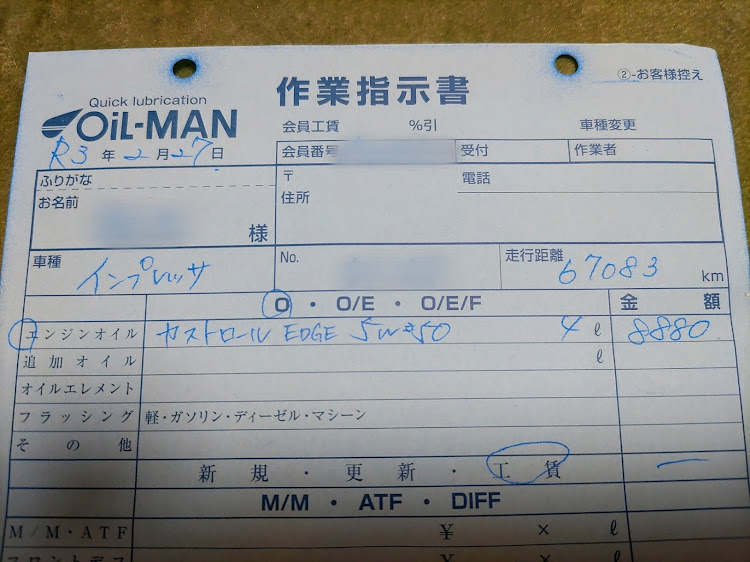 ②-お客様控え
Quick lubrication
OiL-MAN
作業指示書
会員工賃 %引 車種変更
R3年2月27日
会員番号 受付 作業者
ふりがな 〒 電話
お名前 様 住所
車種 インプレッサ No. 走行距離 67083 km
O・O/E・O/E/F 金額
エンジンオイル カストロール EDGE 5W-50 4ℓ 8880
追加オイル ℓ
オイルエレメント
フラッシング 軽・ガソリン・ディーゼル・マシーン
その他
新規・更新・工賃 ー
M/M・ATF・DIFF
M/M・ATF ¥ × ℓ